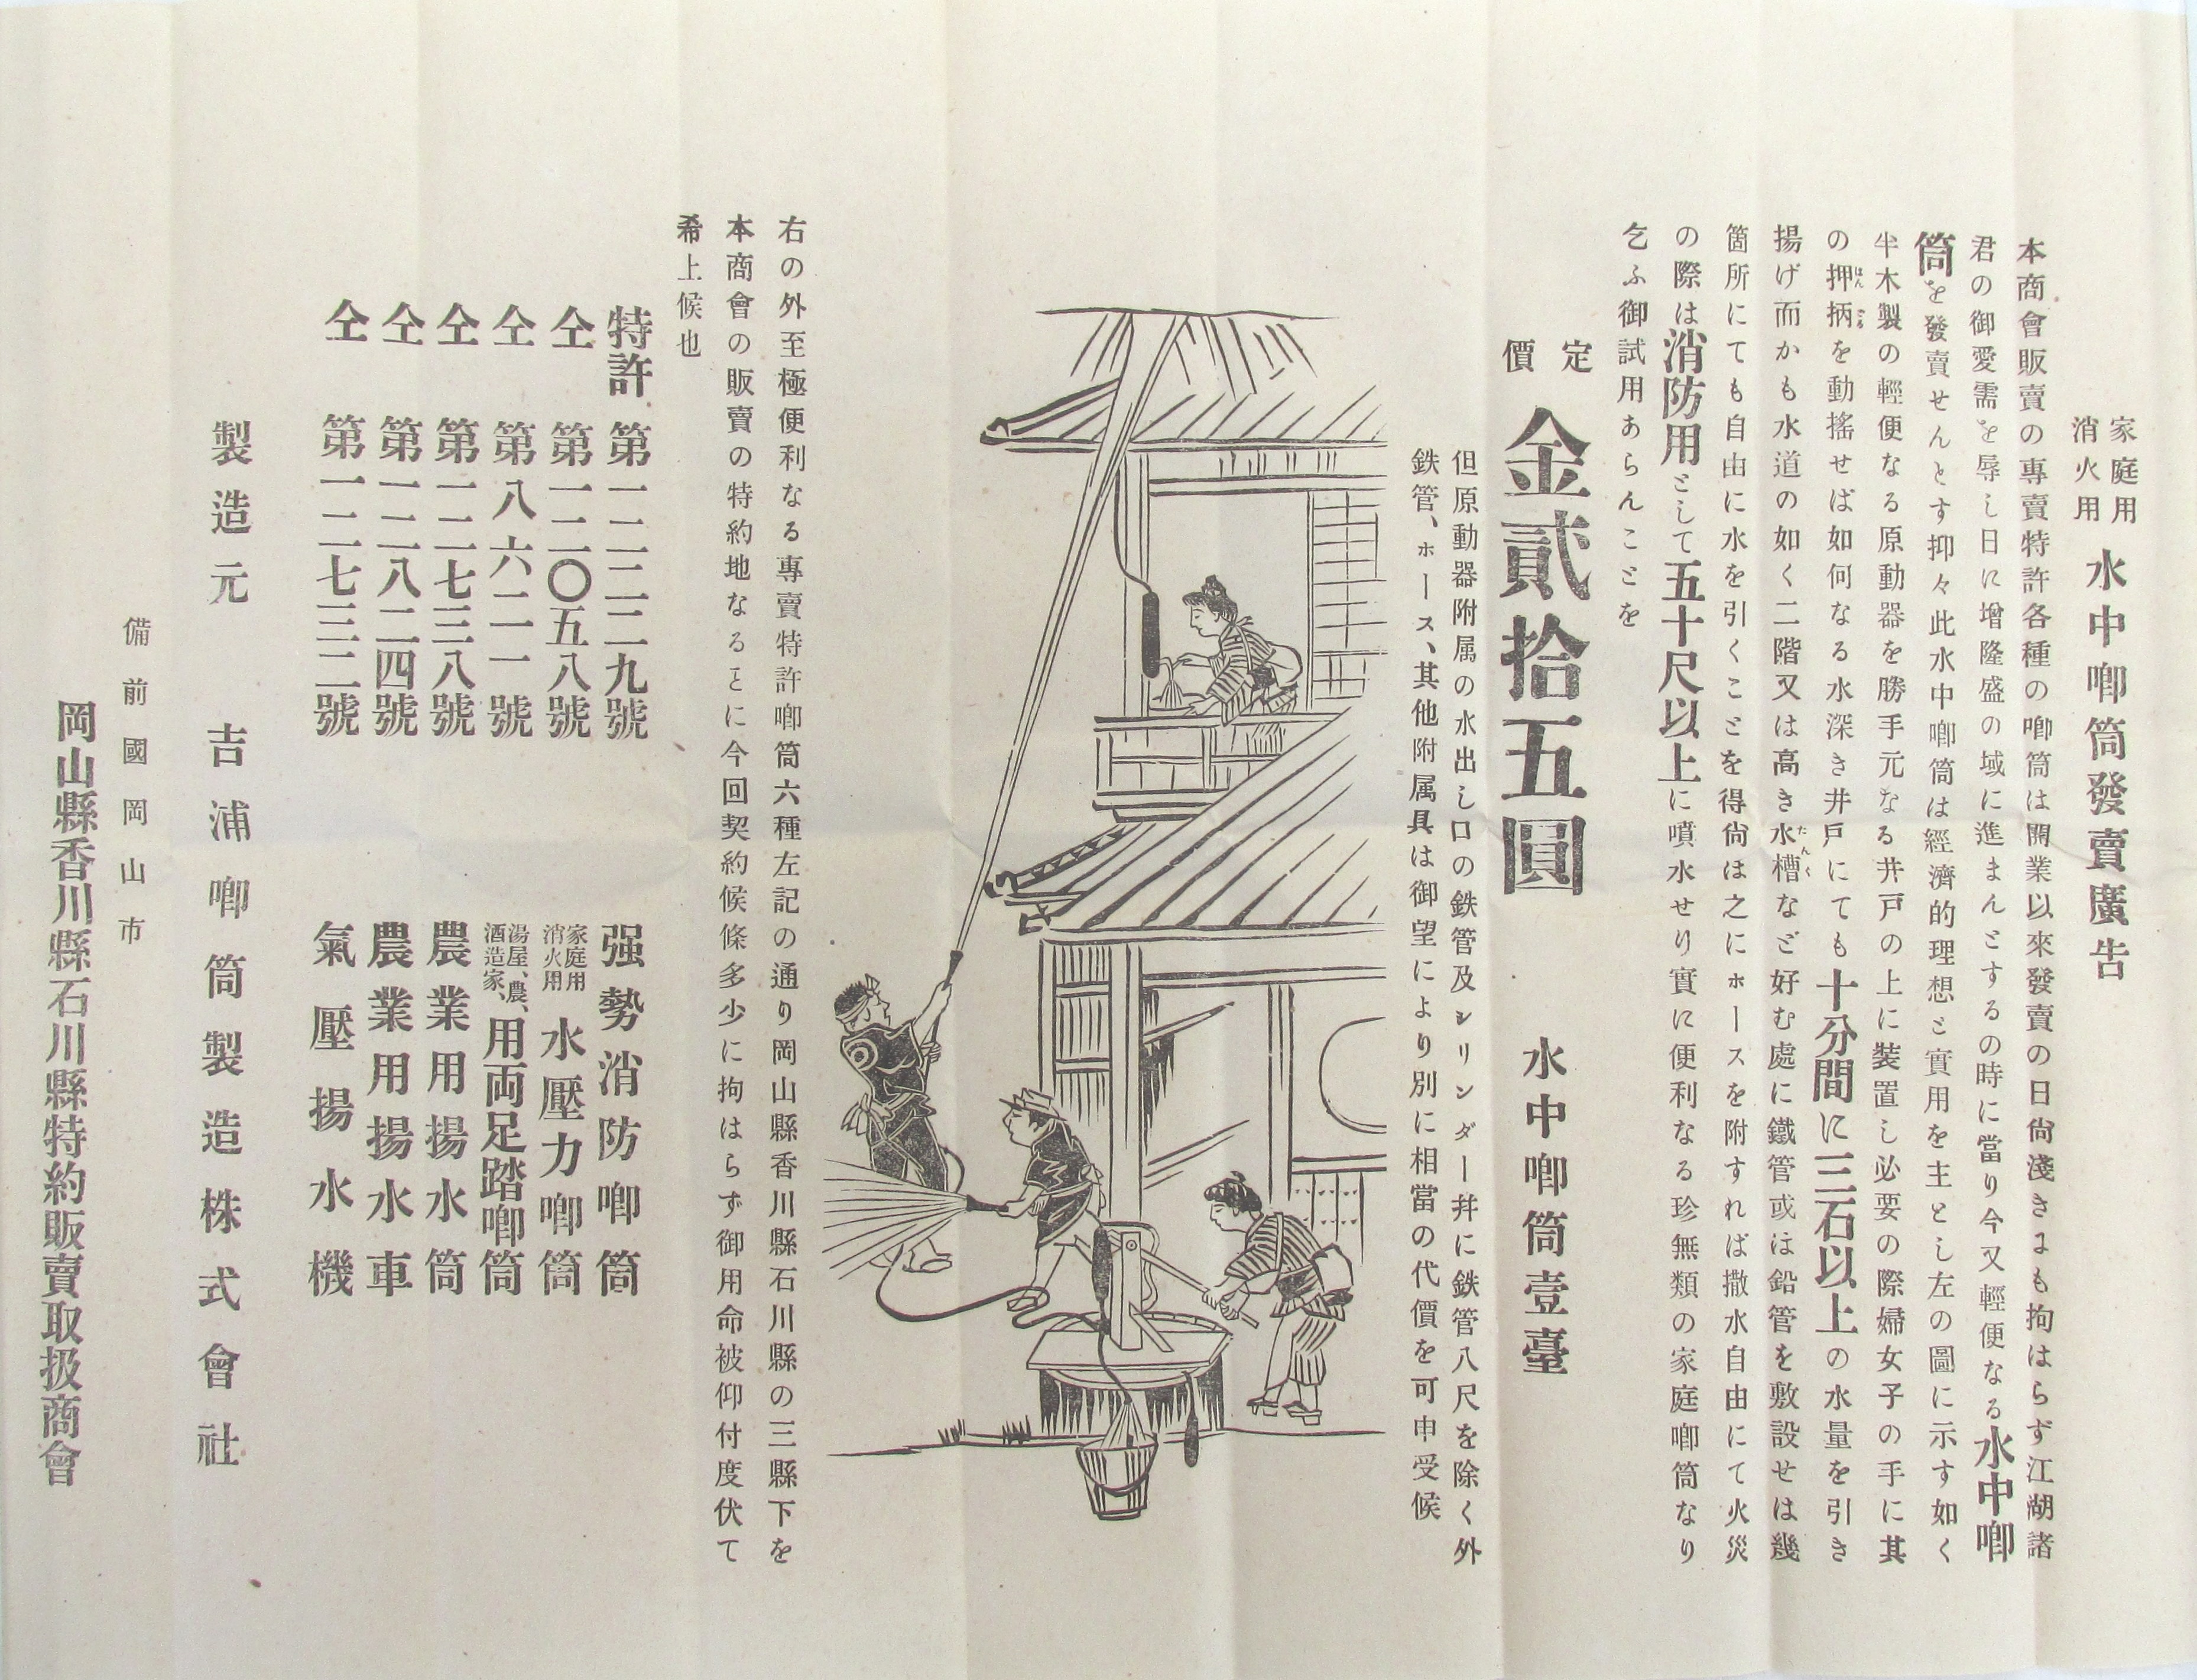 家庭用
消火用
水中喞筒發賣廣告
本商會販賣の專賣特許各種の喞筒は開業以來發賣の日尙淺きにも拘はらず江湖諸
君の御愛需を辱し日に增隆盛の域に進まんとするの時に當り今又輕便なる水中喞
筒を發賣せんとす抑々此水中喞筒は經濟的理想と實用を主とし左の圖に示す如く
半木製の輕便なる原動器を勝手元なる井戸の上に裝置し必要の際婦女子の手に其
の押柄を動搖せば如何なる水深き井戸にても十分間に三石以上の水量を引き
揚げ而かも水道の如く二階又は高き水槽など好む處に鐵管或は鉛管を敷設せは幾
箇所にても自由に水を引くことを得尙は之にホースを附すれば撒水自由にて火災
の際は消防用として五十尺以上に噴水せり實に便利なる珍無類の家庭喞筒なり
乞ふ御試用あらんことを
定價 金貳拾五圓 水中喞筒壹臺
但原動器附属の水出し口の鉄管及シリンダー幷に鉄管八尺を除く外
鉄管、ホース、其他附属具は御望により別に相當の代價を可申受候
右の外至極便利なる專賣特許喞筒六種左記の通り岡山縣香川縣石川縣の三縣下を
本商會の販賣の特約地なるとに今回契約候條多少に拘はらず御用命被仰付度伏て
希上候也
特許 第一二二二九號 强勢消防喞筒
仝 第一二〇五八號 家庭用消火用 水壓力喞筒
仝 第八六二一號 湯屋、農、酒造家、用両足踏喞筒
仝 第一二七三八號 農業用揚水筒
仝 第一二八二四號 農業用揚水車
仝 第一二七三二號 氣壓揚水機
製造元 吉浦喞筒製造株式會社
備前國岡山市
岡山縣香川縣石川縣特約販賣取扱商會